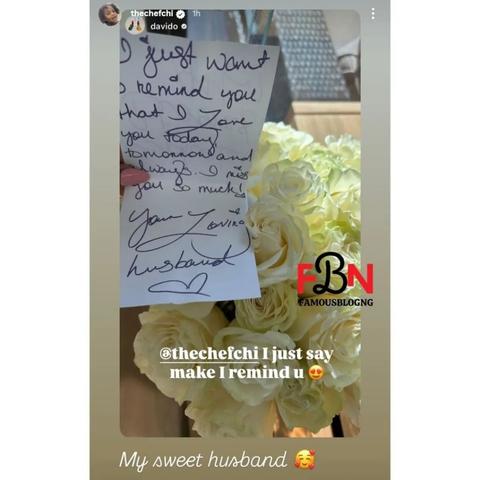 thechefchi 1h
davido
I just want
to remind you
that I Love
you today,
tomorrow and
always.. I miss
you so much!
Your Loving
husband
FBN
FAMOUSBLOGNG
@thechefchi I just say
make I remind u 😍
My sweet husband 🥰